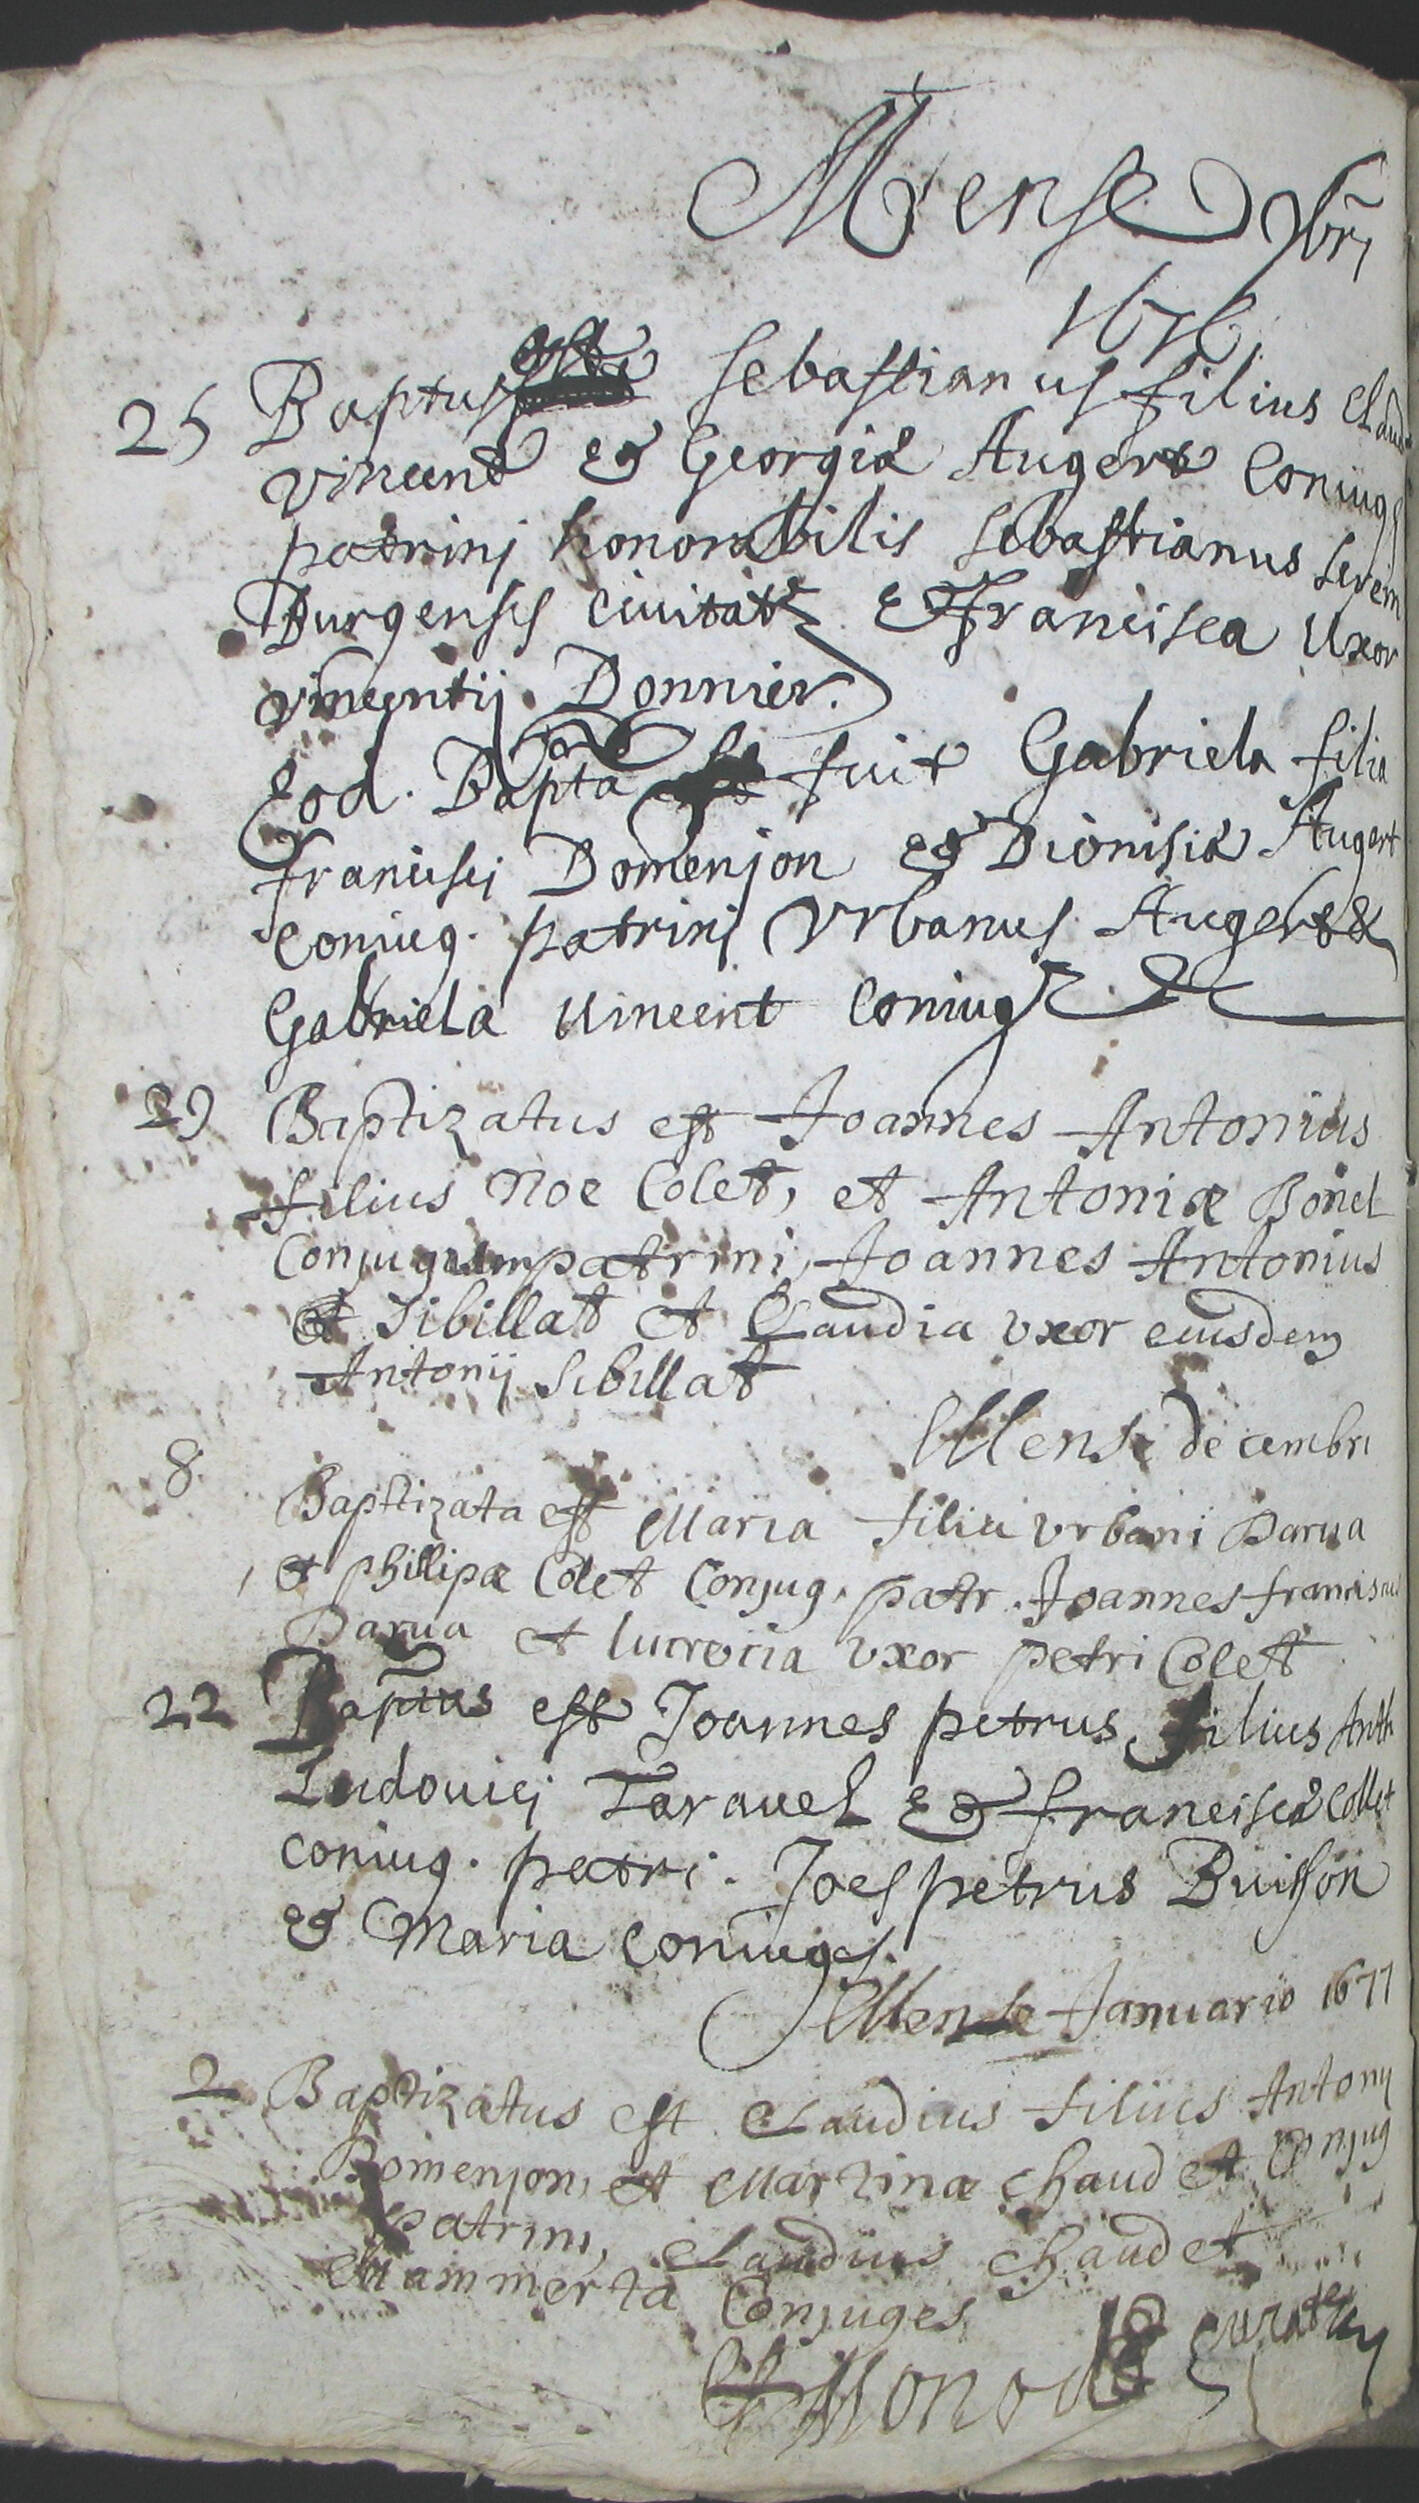 Mense 9bri
1676
25 Baptus est Sebastianus filius Claud
Vincend et Georgiæ Augert Coniug
patrinj honorabilis Sebastianus
Burgensis Ciuitat et Francisca Uxor
Vincentij Donnier.
Eod. Bapta fuit Gabriela filia
Francisci Domenjon et Dionisiæ Augert
Coniug. patrinj Vrbanus Augert &
Gabriela Vincent Coniug
29 Baptizatus est Joannes Antonius
filius Noe Colet, et Antoniæ Bonel
Conjugum patrini, Joannes Antonius
Sibillat et Claudia vxor eiusdem
Antonij Sibillat
Mense decembri
8. Baptizata est Maria filia vrbani Darua
et phillipæ Colet Conjug. patr. Joannes franciscus
Darua et lucrecia vxor petri Colet
22 Baptus est Joannes petrus filius Anth
Ludouicj Taravel et franciscæ Collet
coniug. patri. Joes petrus Buisson
et Maria Coniuges.
Mense Januario 1677
2 Baptizatus est Claudius filius Antonij
Domenjon, et Martinæ Chaudet Conjug
patrini, Claudius Chaudet
Mammerta Conjuges